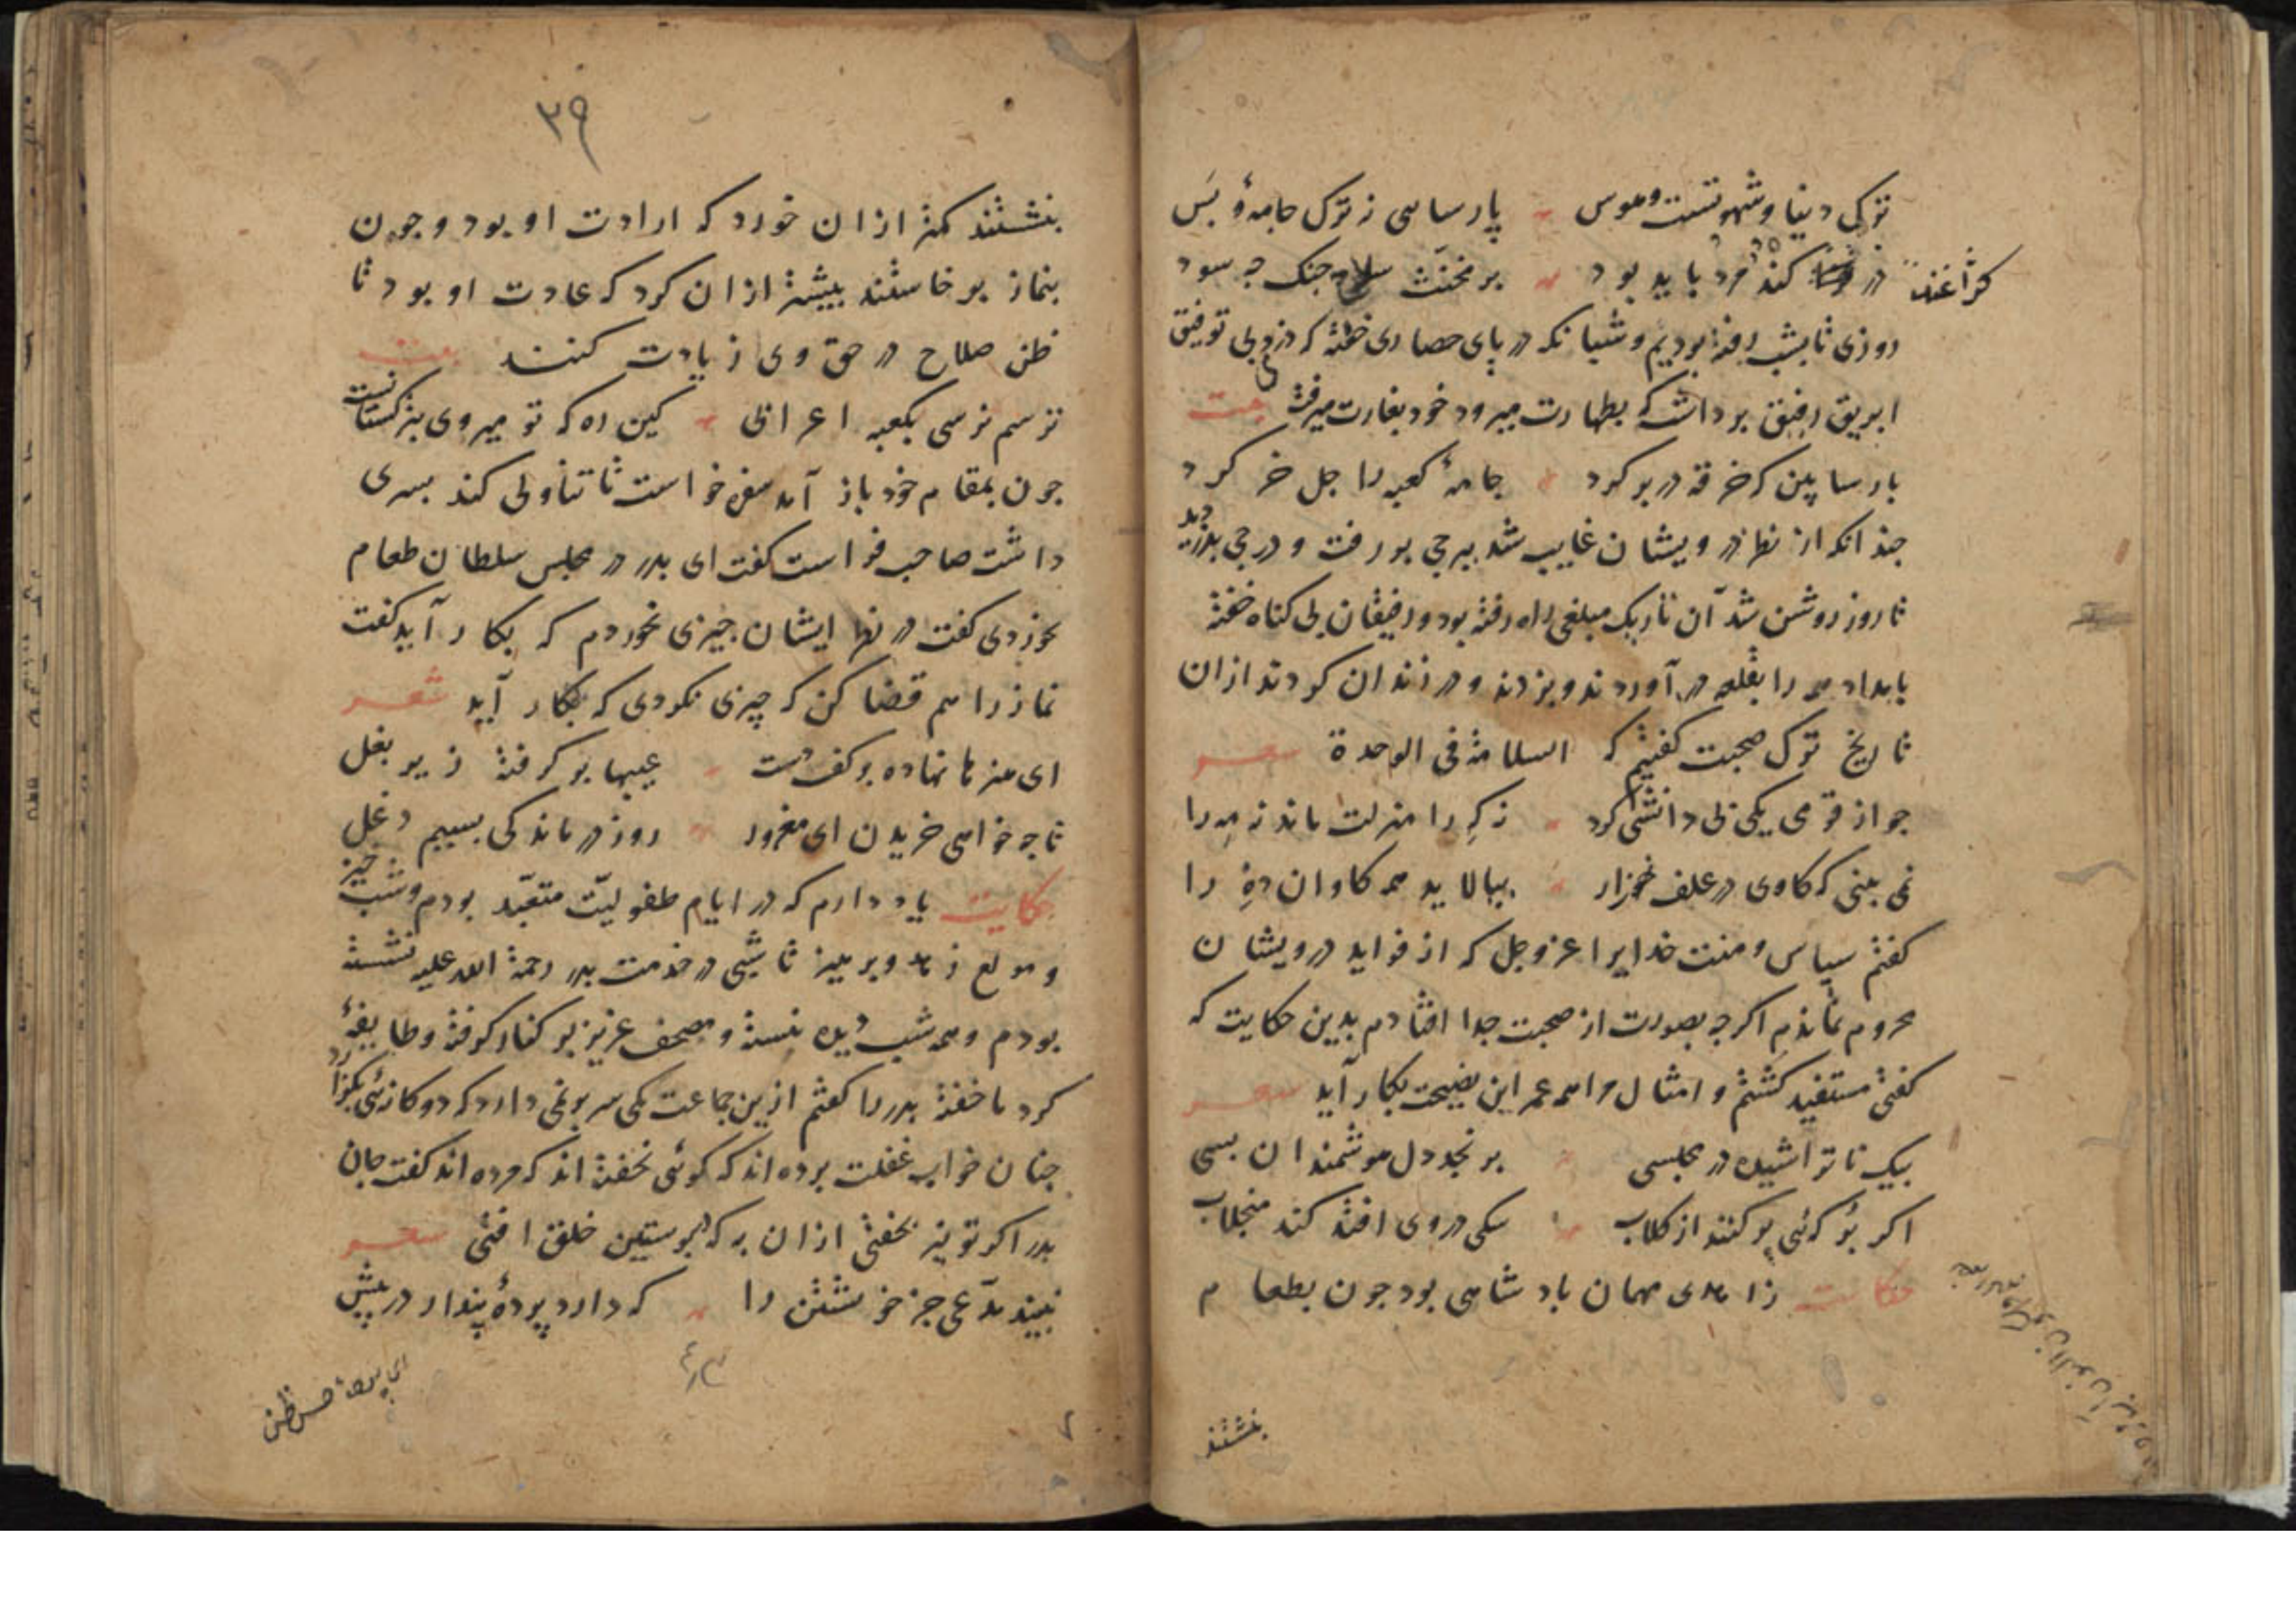 ترکی دنیا و شهوتست و هوس پارسایی نه ترک جامهٔ و بس
در کژاغند مرد باید بود بر مخنث سلاح جنک جه سود
روزی تا بشب رفته بودیم و شبانکه در پای حصاری خفته که دزد بی توفیق
ابریق رفیق برداشت که بطهارت میرود خود بغارت میرفت بیت
پارسا بین که خرقه در بر کرد جامهٔ کعبه را جل خر کرد
جندانکه از نظر درویشان غایب شد ببرجی بر رفت و درجی بدزدید
تا روز روشن شد آن تاریک مبلغی راه رفته بود و رفیقان بی کناه خفته
بامداد همه را بقلعه در آوردند و بزدند و در زندان کردند از ان
تاریخ ترک صحبت کفتیم که السلامة فی الوحدة شعر
جو از قومی یکی بی دانشی کرد نه که را منزلت ماند نه مه را
نمی بینی که کاوی در علف خوار بیالاید همه کاوان ده را
کفتم سپاس و منت خدایرا عز و جل که از فواید درویشان
محروم نماندم اکرجه بصورت از صحبت جدا افتادم بدین حکایت که
کفتی مستفید کشتم و امثال مرا همه عمر این نصیحت بکار آید شعر
بیک ناتراشیده در مجلسی برنجد دل هوشمندان بسی
اکر برکهٔ پر کنند از کلاب سکی در وی افتد کند منجلاب
حکایت زاهدی مهمان پادشاهی بود جون بطعام
بنشستند
۳۹
بنشستند کمتر از ان خورد که ارادت او بود و جون
بنماز برخاستند بیشتر از ان کرد که عادت او بود تا
ظن صلاح در حق وی زیادت کنند بیت
ترسم نرسی بکعبه اعرابی کین ره که تو میروی بترکستانست
جون بمقام خود باز آمد سفره خواست تا تناولی کند پسری
داشت صاحب فراست کفت ای پدر در مجلس سلطان طعام
نخوردی کفت در نظر ایشان جیزی نخوردم که بکار آید کفت
نماز را هم قضا کن که چیزی نکردی که بکار آید شعر
ای هنرها نهاده بر کف دست عیبها بر کرفته زیر بغل
تا جه خواهی خریدن ای مغرور روز درماندکی بسیم دغل
حکایت یاد دارم که در ایام طفولیّت متعبّد بودم و شب خیز
و مولع زهد و پرهیز تا شبی در خدمت پدر رحمة الله علیه نشسته
بودم و همه شب دیده نبسته و مصحف عزیز بر کنار کرفته و طایفهٔ
کرد ما خفته پدر را کفتم ازین جماعت یکی سر بر نمی دارد که دوکانهٔ بکزارد
جنان خواب غفلت برده اند که کوئی نخفته اند که مرده اند کفت جان
پدر اکر تو نیز بخفتی از ان به که در پوستین خلق افتی شعر
نبیند مدّعی جز خویشتن را که دارد پردهٔ پندار در پیش